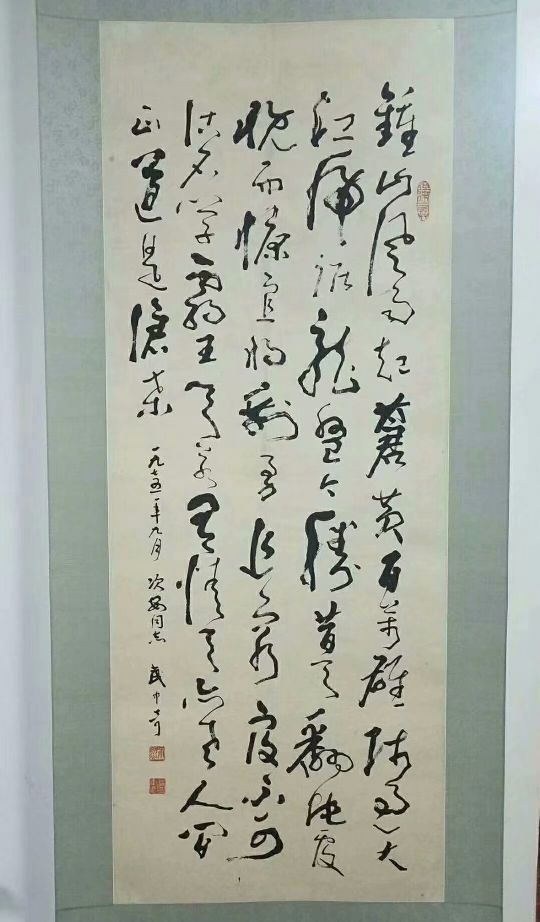 鍾山风雨起蒼黄百万雄师过大
江虎踞龍盘今勝昔天翻地覆
慨而慷宜将剩勇追穷寇不可
沽名学霸王天若有情天亦老人间
正道是滄桑 一九七五年九月 同志 武中奇